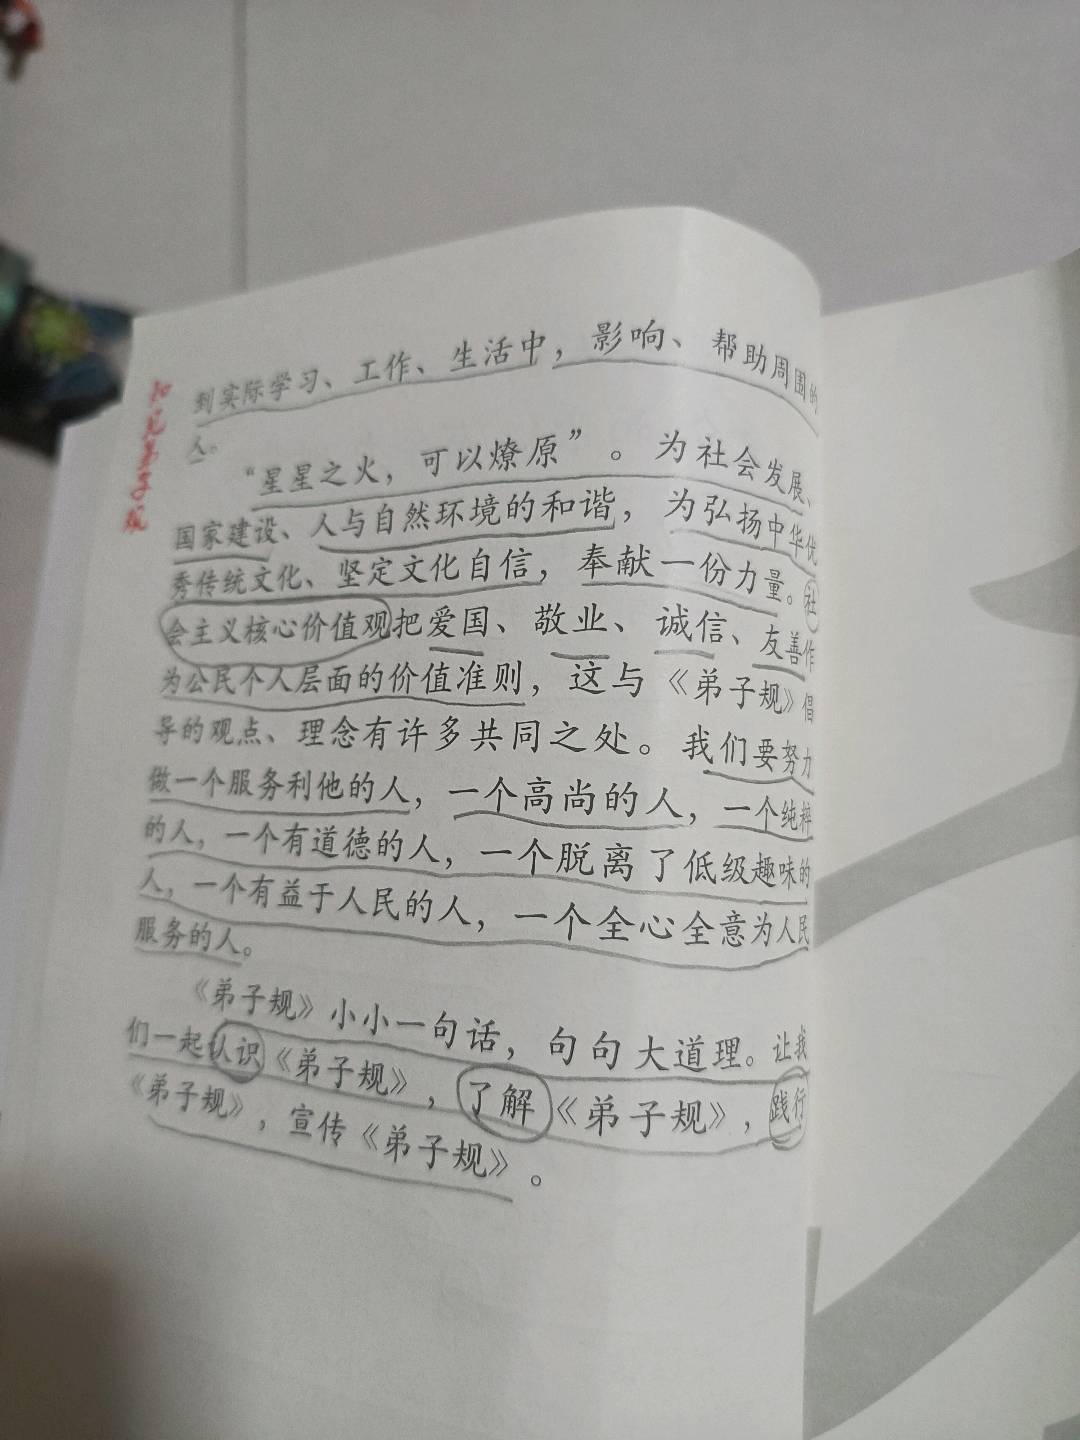 到实际学习、工作、生活中，影响、帮助周围的
人。
“星星之火，可以燎原”。为社会发展、
国家建设、人与自然环境的和谐，为弘扬中华优
秀传统文化、坚定文化自信，奉献一份力量。社
会主义核心价值观把爱国、敬业、诚信、友善作
为公民个人层面的价值准则，这与《弟子规》倡
导的观点、理念有许多共同之处。我们要努力
做一个服务利他的人，一个高尚的人，一个纯粹
的人，一个有道德的人，一个脱离了低级趣味的
人，一个有益于人民的人，一个全心全意为人民
服务的人。
《弟子规》小小一句话，句句大道理。让我
们一起认识《弟子规》，了解《弟子规》，践行
《弟子规》，宣传《弟子规》。
初见弟子规